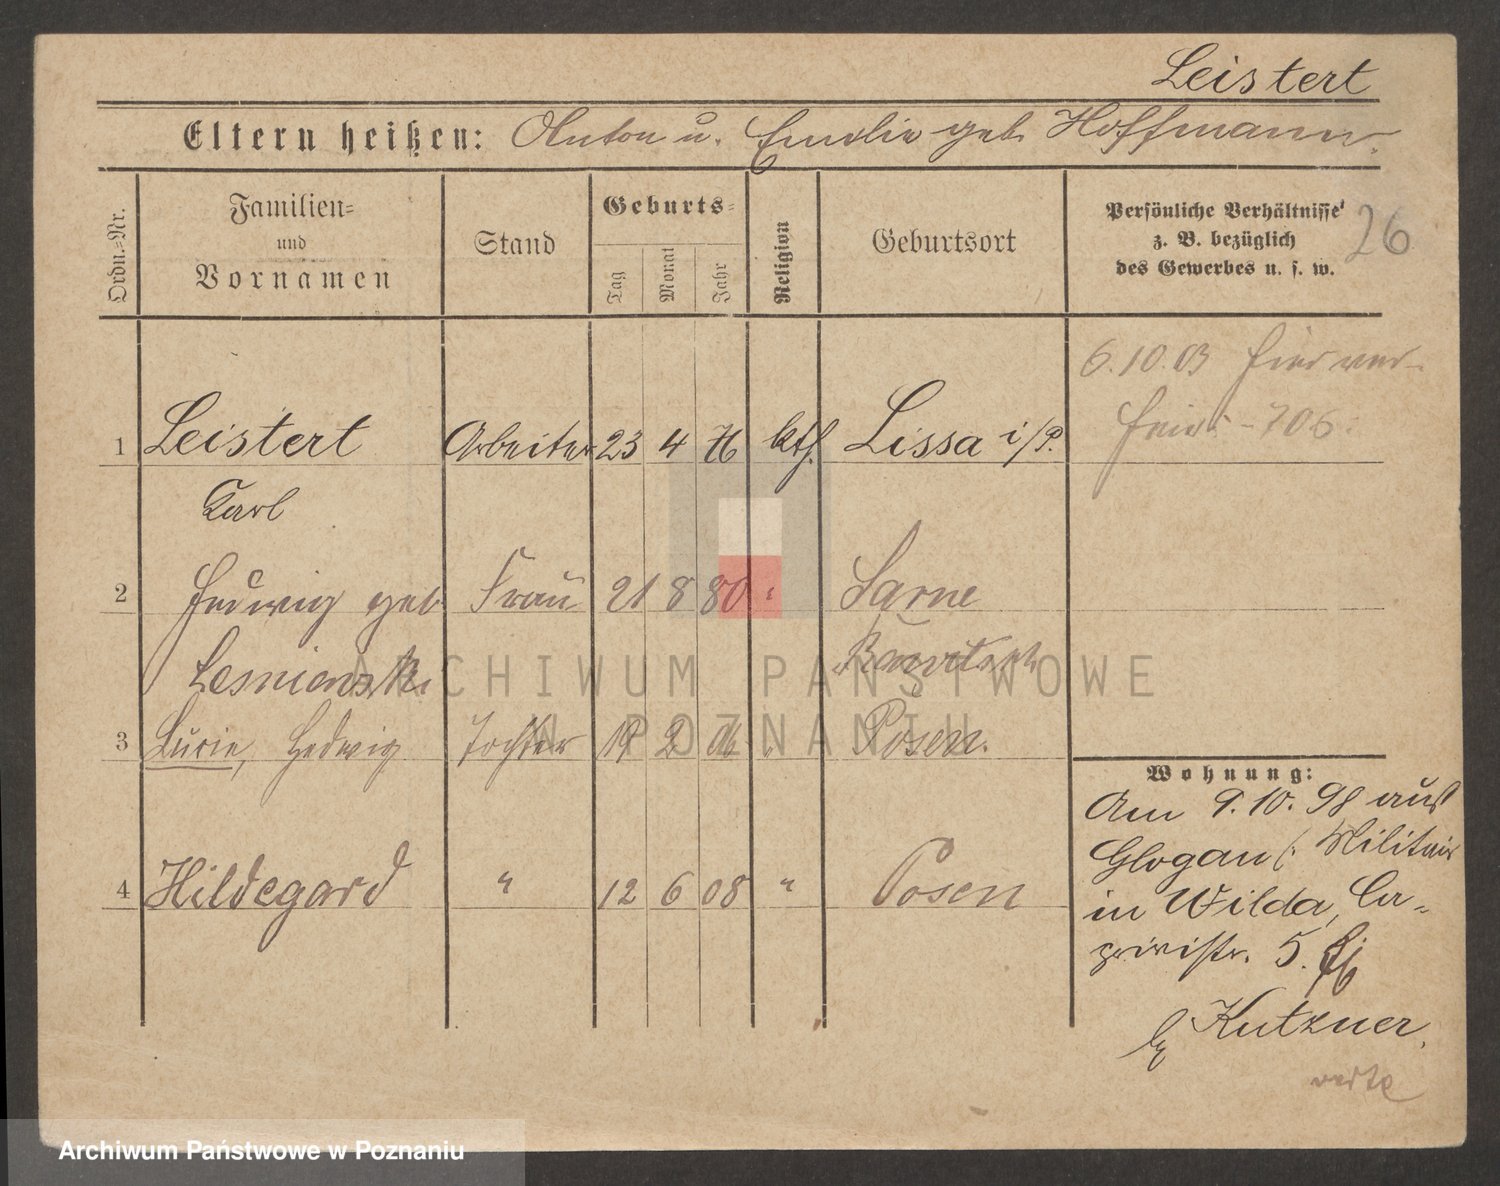 Leistert
Eltern heißen: Anton u. Emilie geb Hoffmann.
Ordn.=Nr.
Familien=
und
Vornamen
Stand
Geburts=
Tag
Monat
Jahr
Religion
Geburtsort
Persönliche Verhältnisse
z. B. bezüglich
des Gewerbes u. s. w.
26
6.10.03
706
1 Leistert Arbeiter 23 4 76 kth. Lissa i/P.
Karl
2 Hedwig geb Frau 21 8 80 " Sarne
Lesniewski Rawitsch
3 Lucie, Hedwig Tochter 19 2 " Posen.
4 Hildegard " 12 6 08 " Posen
Wohnung:
Am 9.10.98 aus
Glogau (: Militair
in Wilda, Ca-
privistr. 5.
b Kutzner.
verte
ARCHIWUM PAŃSTWOWE
W POZNANIU
Archiwum Państwowe w Poznaniu